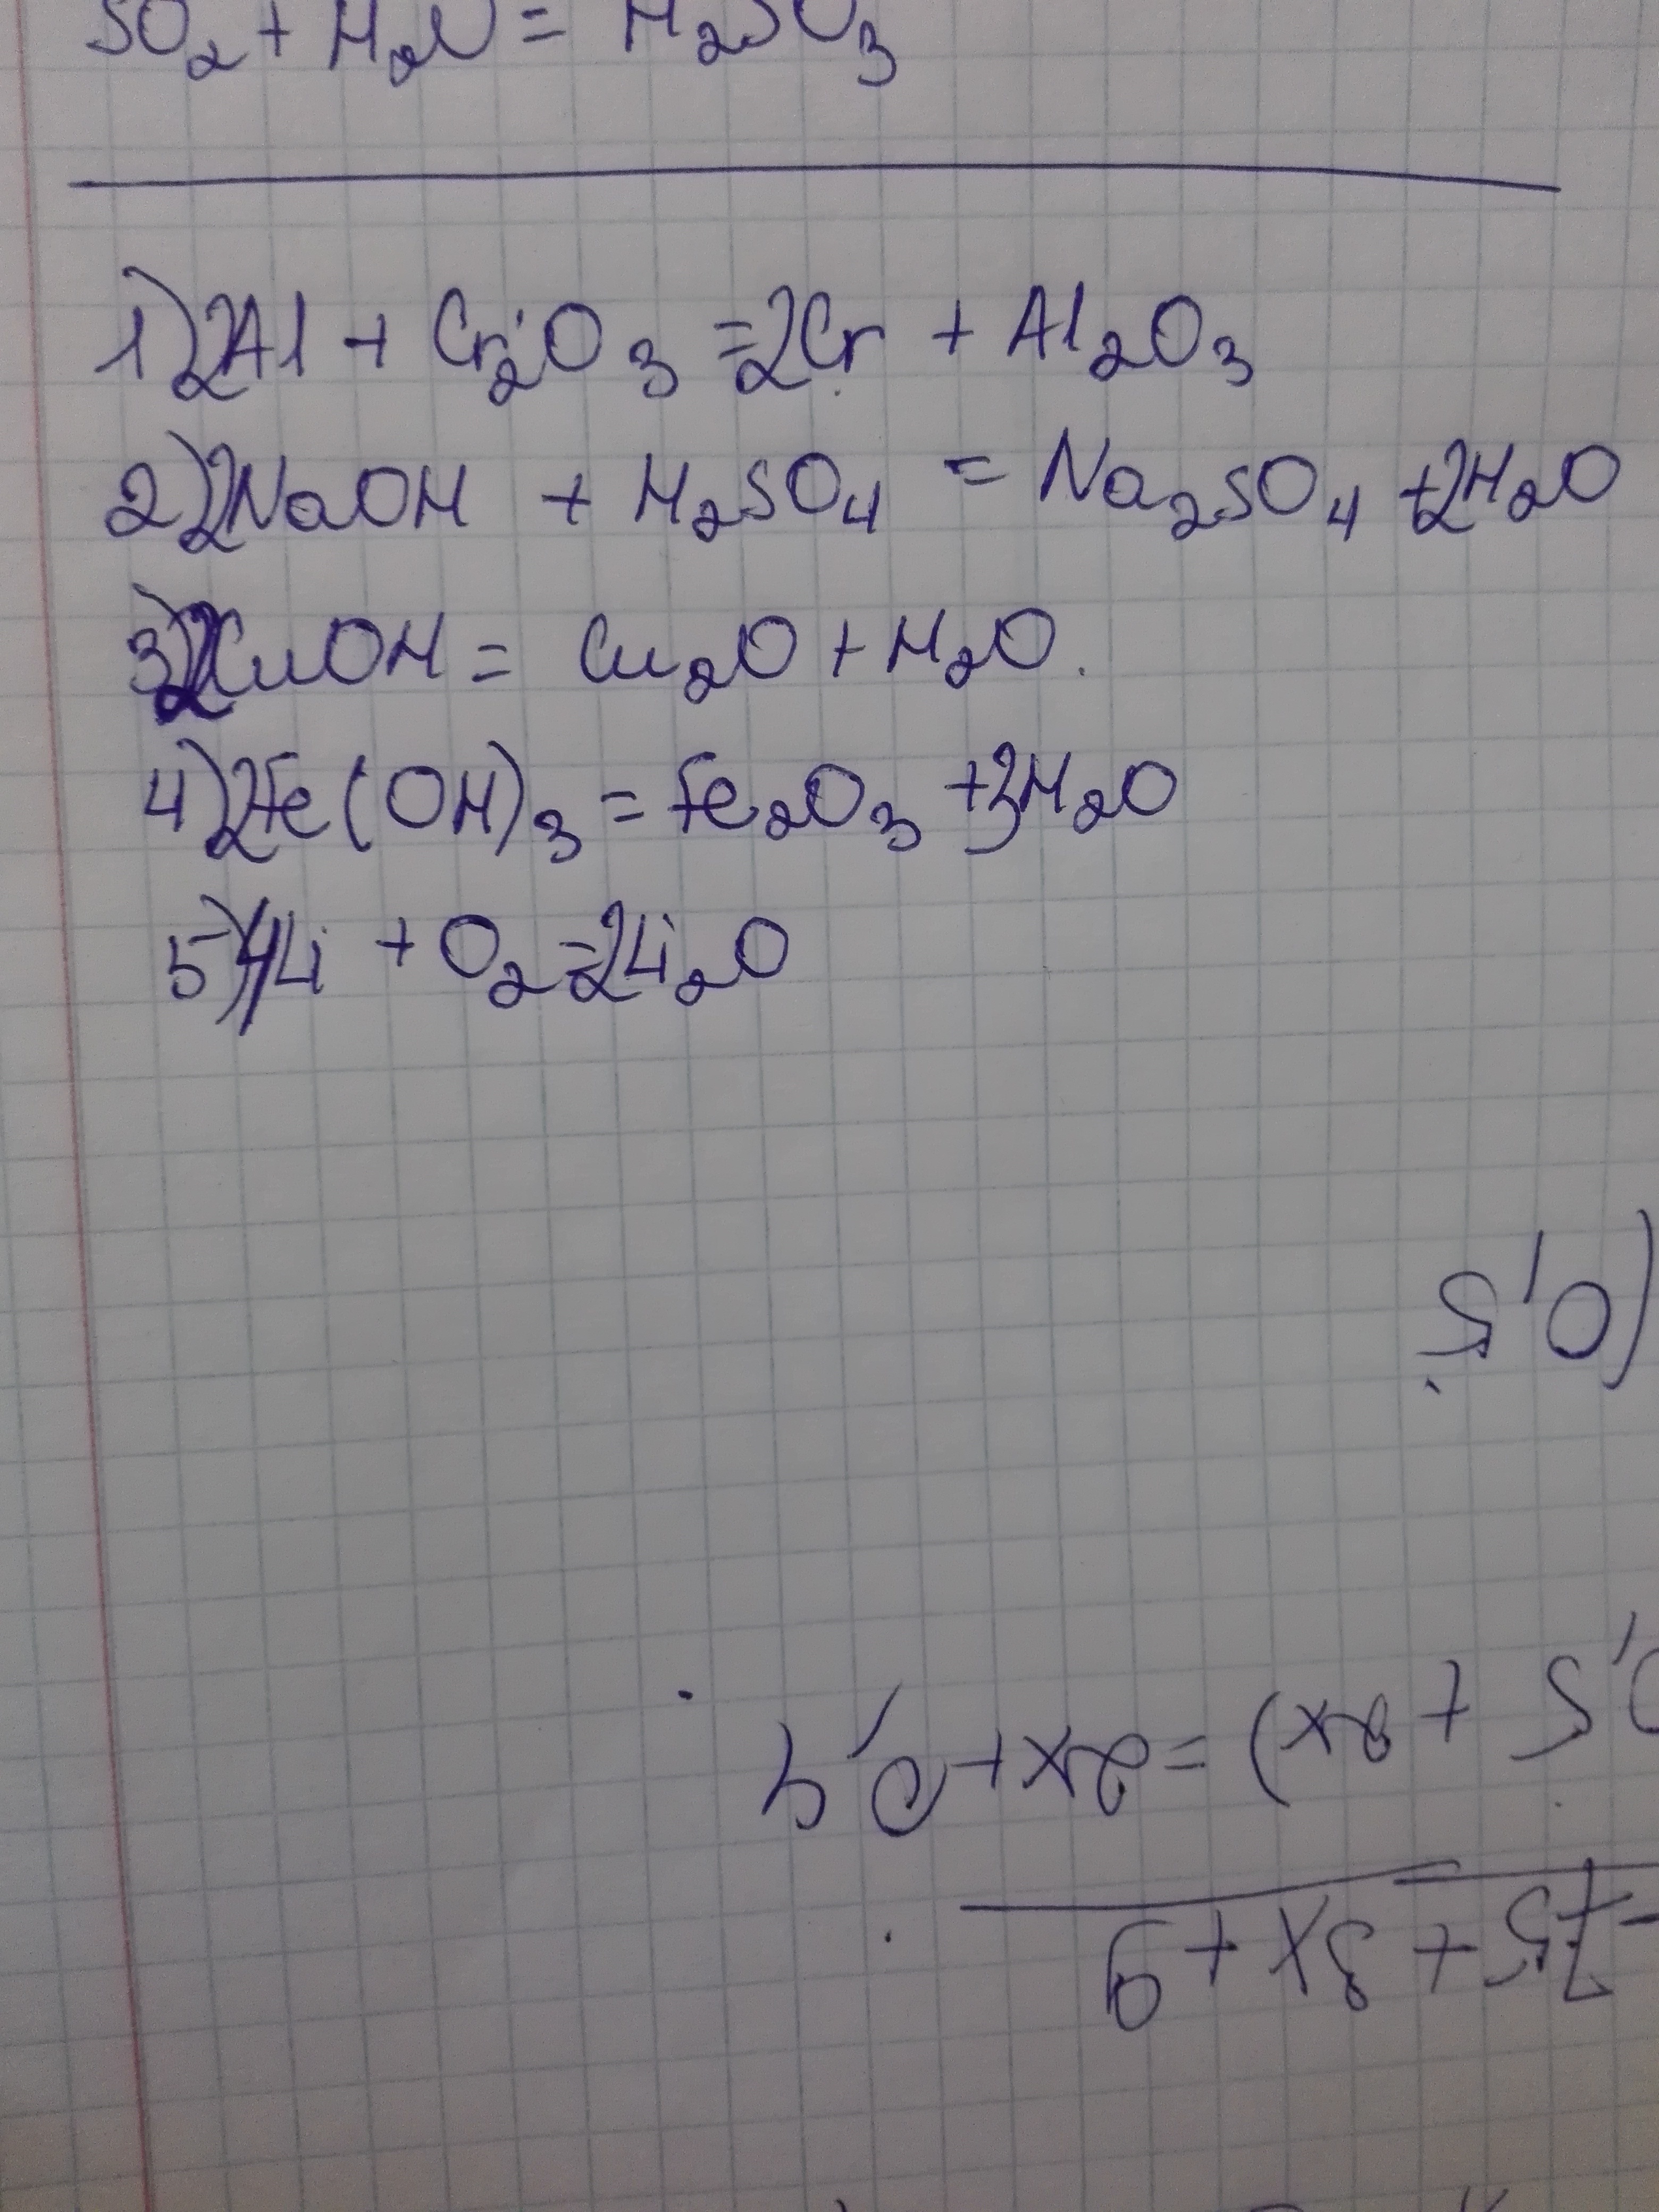 SO₂ + H₂O = H₂SO₃
1) 2Al + Cr₂O₃ = 2Cr + Al₂O₃
2) 2NaOH + H₂SO₄ = Na₂SO₄ + 2H₂O
3) 2CuOH = Cu₂O + H₂O.
4) 2Fe(OH)₃ = Fe₂O₃ + 3H₂O
5) 4Li + O₂ = 2Li₂O
(0,5
0,5 + 8x) = 2x + 0,4
75 + 3x + 9